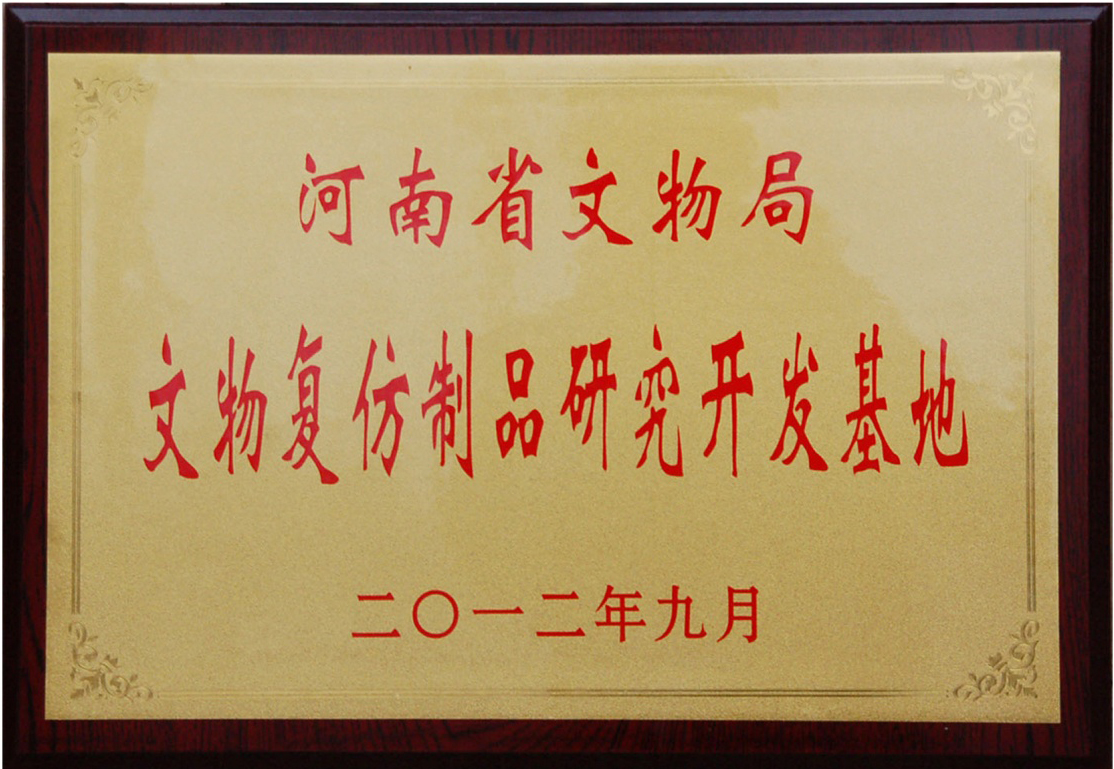 河南省文物局
文物复仿制品研究开发基地
二〇一二年九月